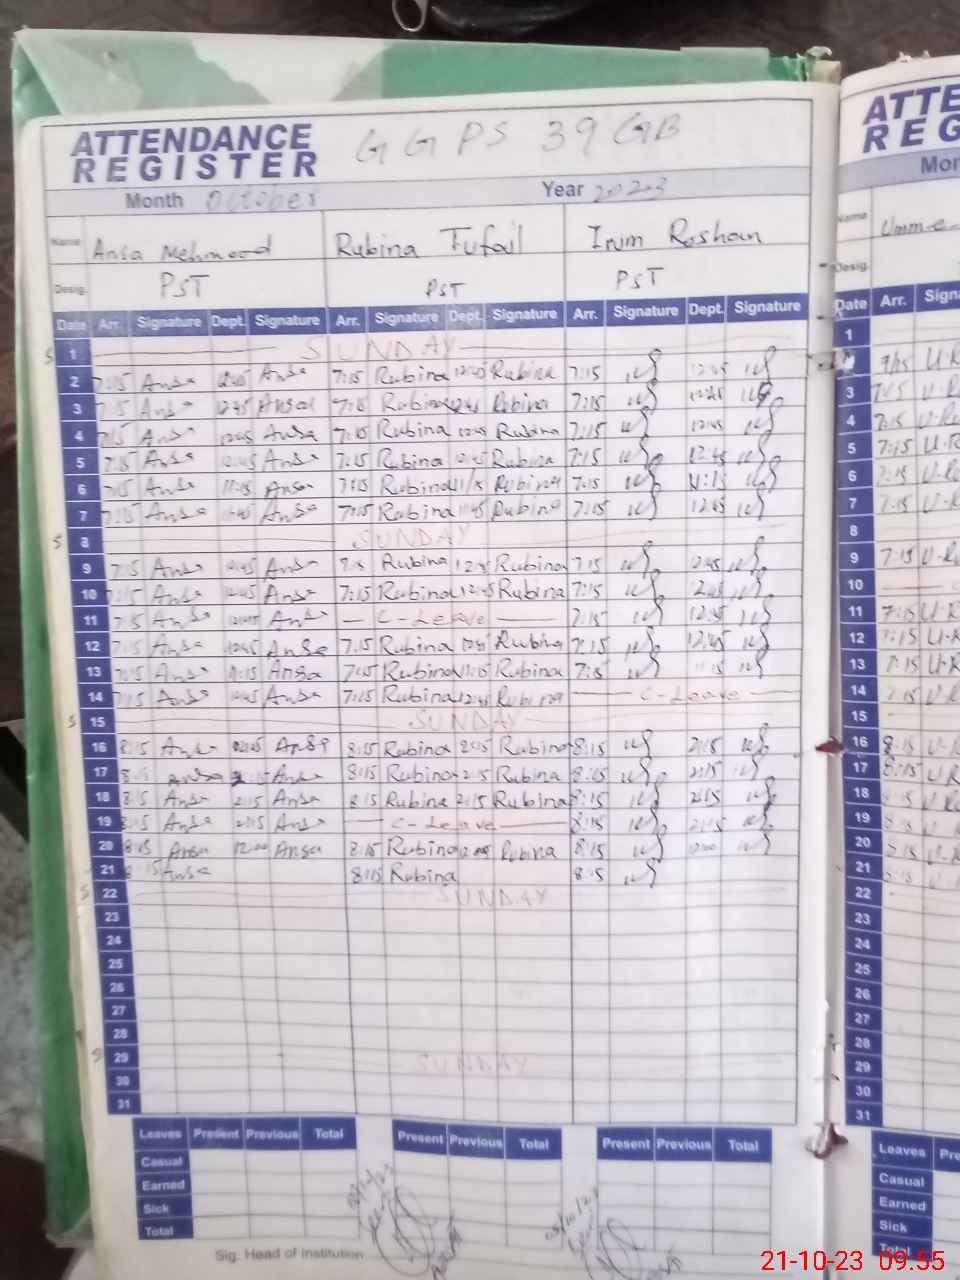 ATTENDANCE REGISTER GGPS 39 GB
Month October Year 2023
Name Ansa Mehmood Rubina Tufail Irum Roshan
Desig. PST PST PST
Date Arr. Signature Dept. Signature Arr. Signature Dept. Signature Arr. Signature Dept. Signature
S 1 SUNDAY
2 7:15 Ansa 12:45 Ansa 7:15 Rubina 12:45 Rubina 7:15 12:45
3 7:15 Ansa 12:45 Ansa 7:15 Rubina 12:45 Rubina 7:15 12:45
4 7:15 Ansa 12:45 Ansa 7:15 Rubina 12:45 Rubina 7:15 12:45
5 7:15 Ansa 12:45 Ansa 7:15 Rubina 12:45 Rubina 7:15 12:45
6 7:15 Ansa 11:15 Ansa 7:15 Rubina 11/15 Rubina 7:15 11:15
7 7:15 Ansa Ansa 7:15 Rubina Rubina 7:15 12:45
S 8 SUNDAY
9 7:15 Ansa 12:45 Ansa 7:15 Rubina 12:45 Rubina 7:15 12:45
10 7:15 Ansa 12:45 Ansa 7:15 Rubina 12:45 Rubina 7:15 12:45
11 7:15 Ansa 12:45 Ansa C-Leave 7:15 12:45
12 7:15 Ansa 12:45 Ansa 7:15 Rubina 12:45 Rubina 7:15 12:45
13 7:15 Ansa 11:15 Ansa 7:15 Rubina 11:15 Rubina 7:15 11:15
14 7:15 Ansa 12:45 Ansa 7:15 Rubina 12:45 Rubina C-Leave
S 15 SUNDAY
16 8:15 Ansa Ansa 8:15 Rubina 2:15 Rubina 8:15 2:15
17 8:15 Ansa 2:15 Ansa 8:15 Rubina 2:15 Rubina 8:15 2:15
18 8:15 Ansa 2:15 Ansa 8:15 Rubina 2:15 Rubina 8:15 2:15
19 8:15 Ansa 2:15 Ansa C-Leave 8:15 2:15
20 8:15 Ansa 12:00 Ansa 8:15 Rubina 12:00 Rubina 8:15 12:00
21 8:15 Ansa 8:15 Rubina 8:15
S 22 SUNDAY
23
24
25
26
27
28
S 29 SUNDAY
30
31
Leaves Present Previous Total Present Previous Total Present Previous Total
Casual
Earned
Sick
Total
Sig. Head of institution
ATTE
REG
Mon
Name Umm-e-
Desig.
Date Arr. Sign
1
7/15 U-R
3 7:15 U-R
4 7:15 U-R
5 7:15 U-R
6 7:15 U-R
7 7:15 U-R
8
9 7:15 U-R
10
11 7:15 U-R
12 7:15 U-R
13 7:15 U-R
14 7:15 U-R
15
16 8:15 U-R
17 8:15 U-R
18 8:15 U-R
19 8:15 U-R
20 8:15 U-R
21 8:15 U-R
22
23
24
25
26
27
28
29
30
31
Leaves Pre
Casual
Earned
Sick
Total
21-10-23 09:55